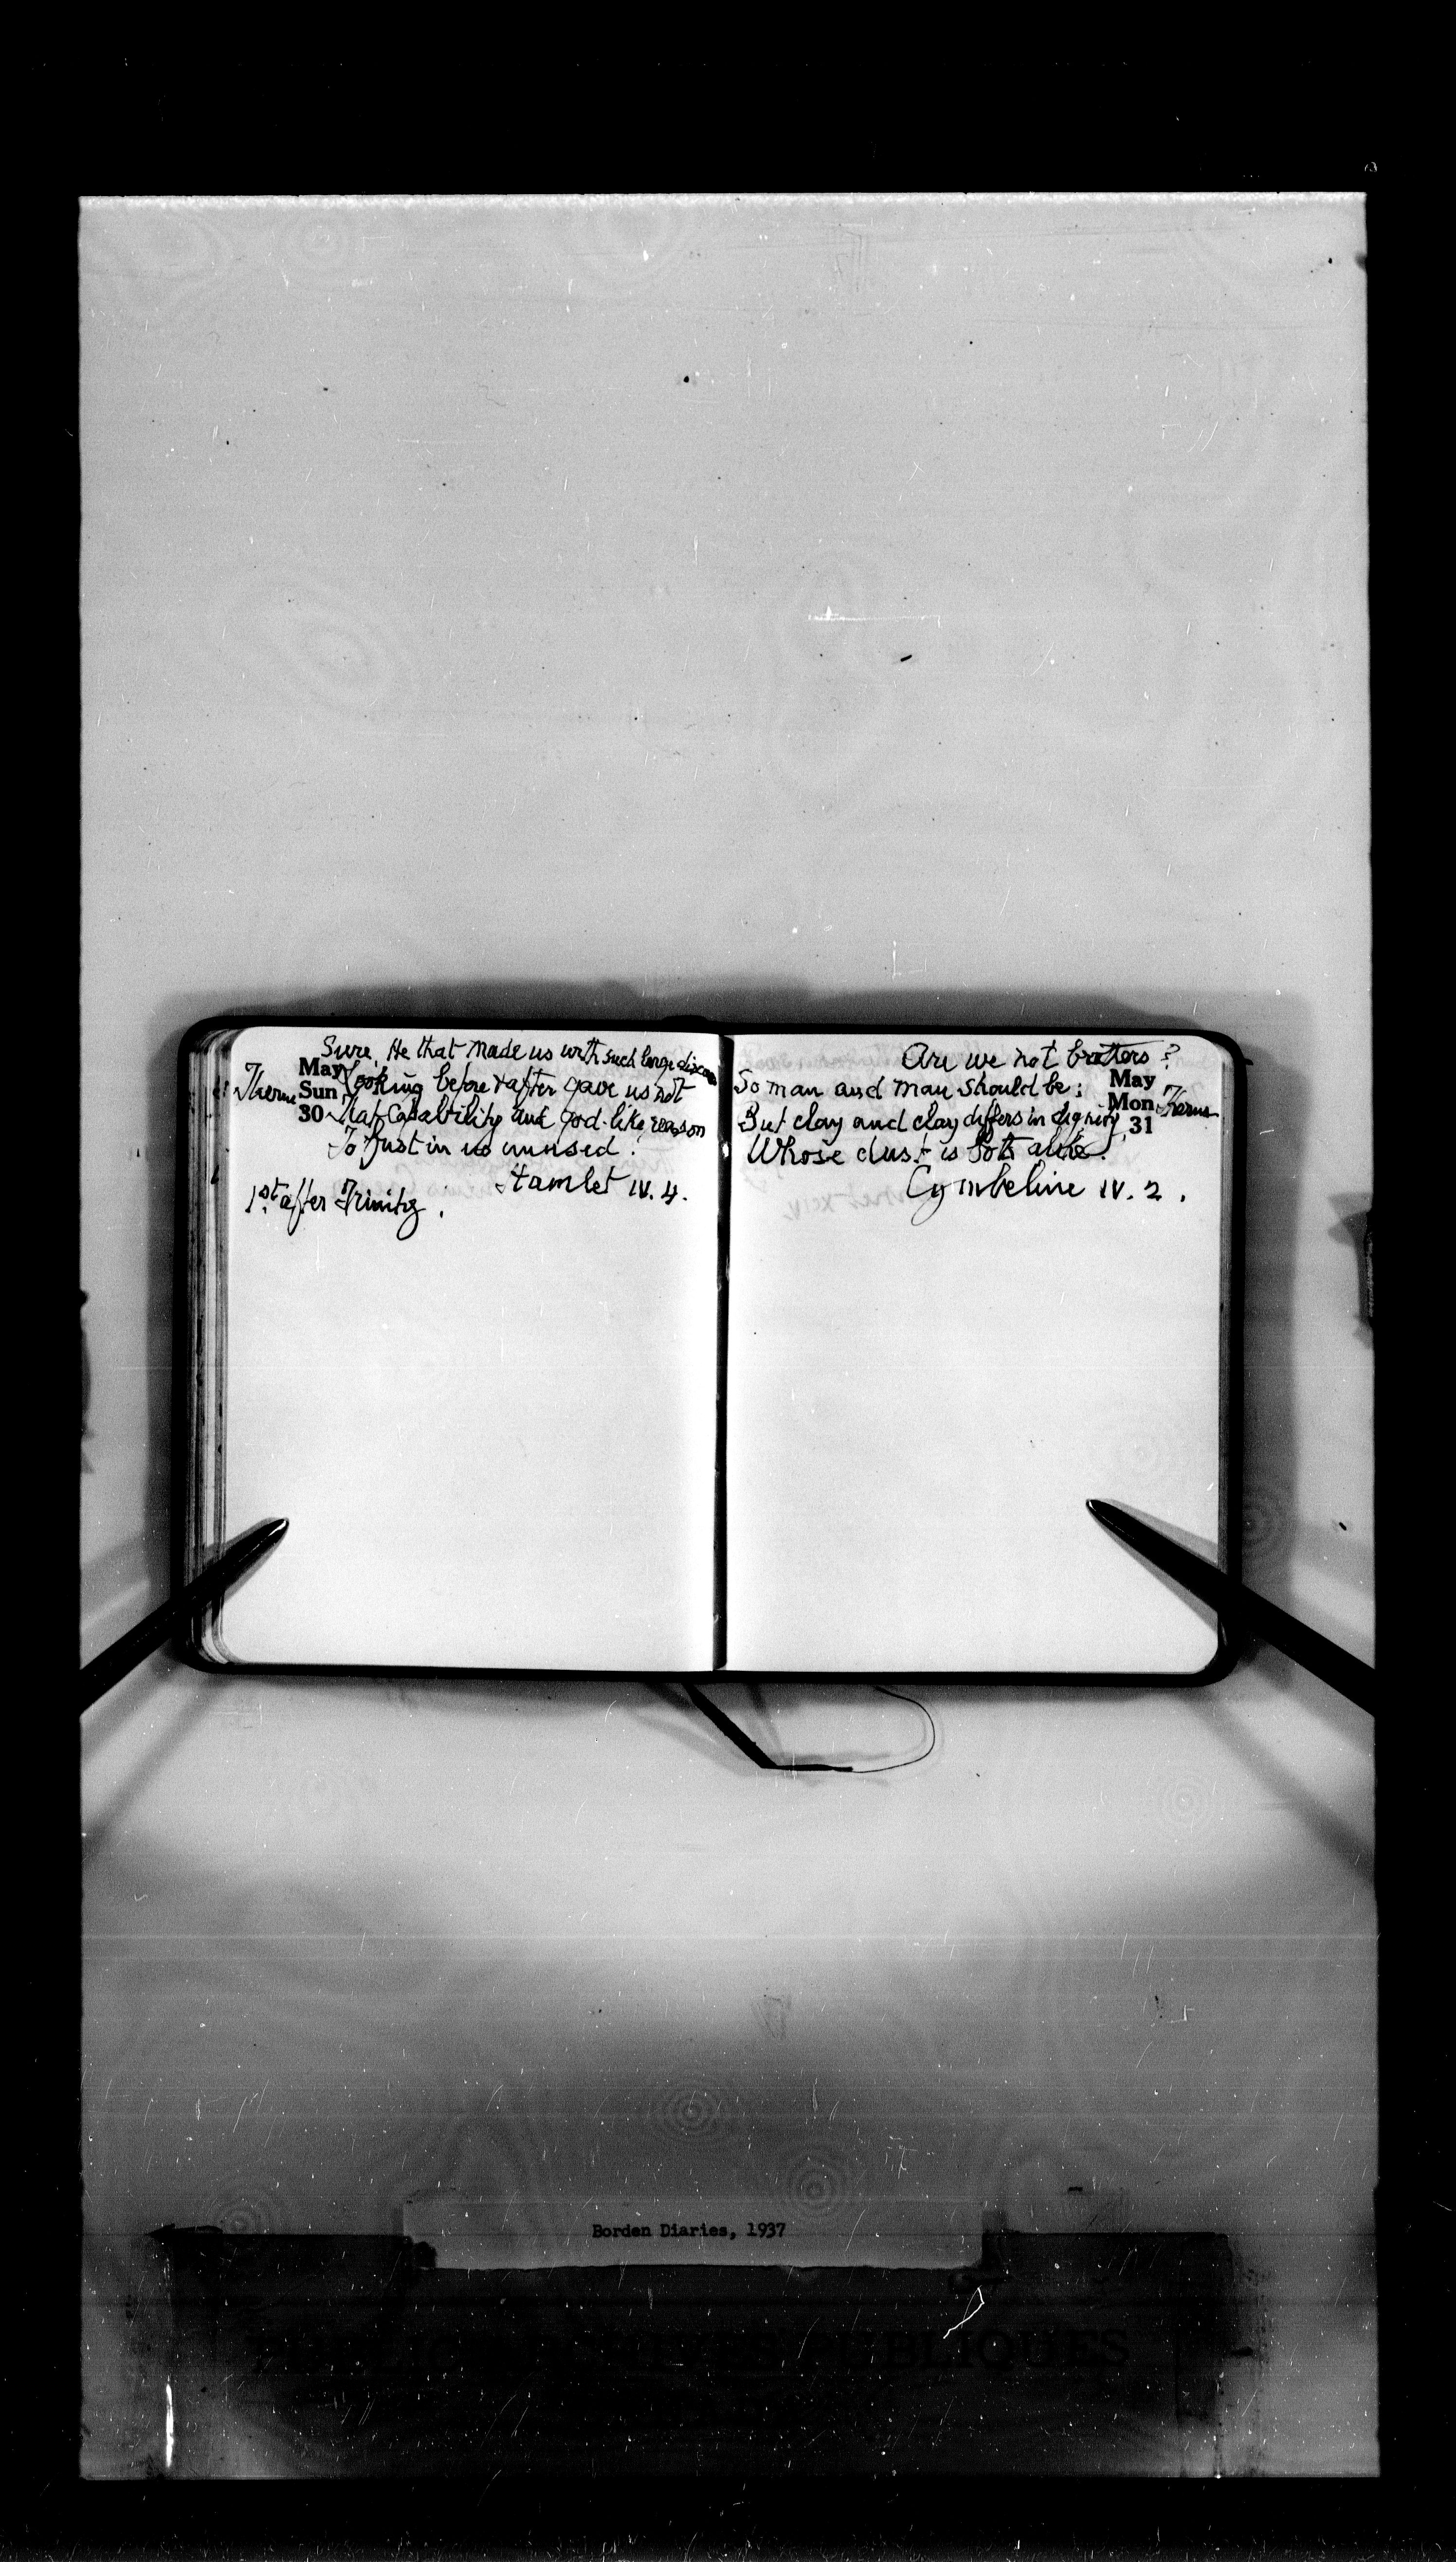 Sure, He that made us with such large discourse
May
Looking before & after gave us not
Therm
Sun
30
That capability and god-like reason
To fust in us unused.
Hamlet IV. 4.
1st after Trinity.
Are we not brothers?
So man and man should be;
May
Mon
Therm
But clay and clay differs in dignity,
31
Whose dust is both alike.
Cymbeline IV. 2.
Borden Diaries, 1937